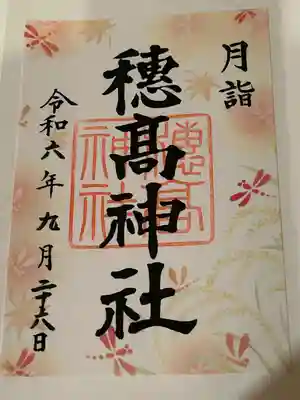 月詣
穂高神社
穂高神社
令和六年九月二十六日